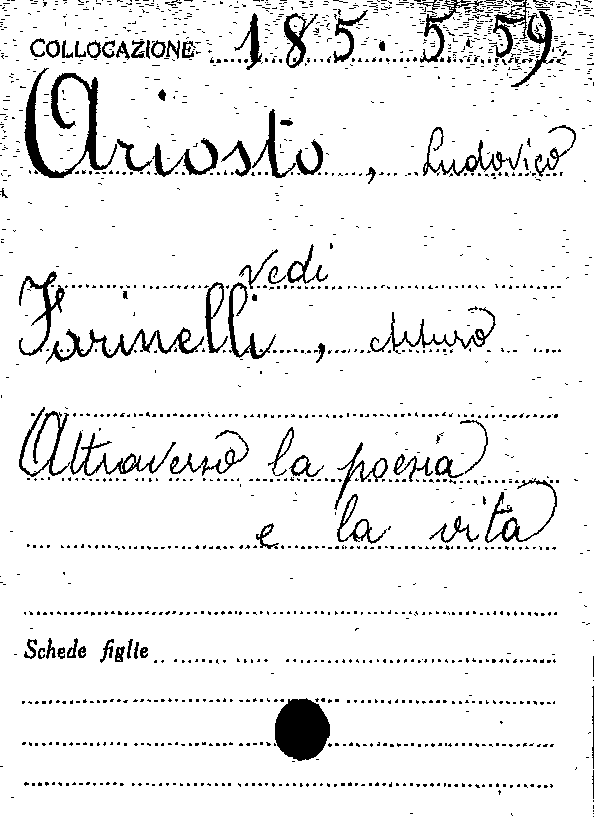 COLLOCAZIONE 185.5.59
Ariosto, Ludovico
vedi
Farinelli, Arturo
Attraverso la poesia
e la vita
Schede figlie